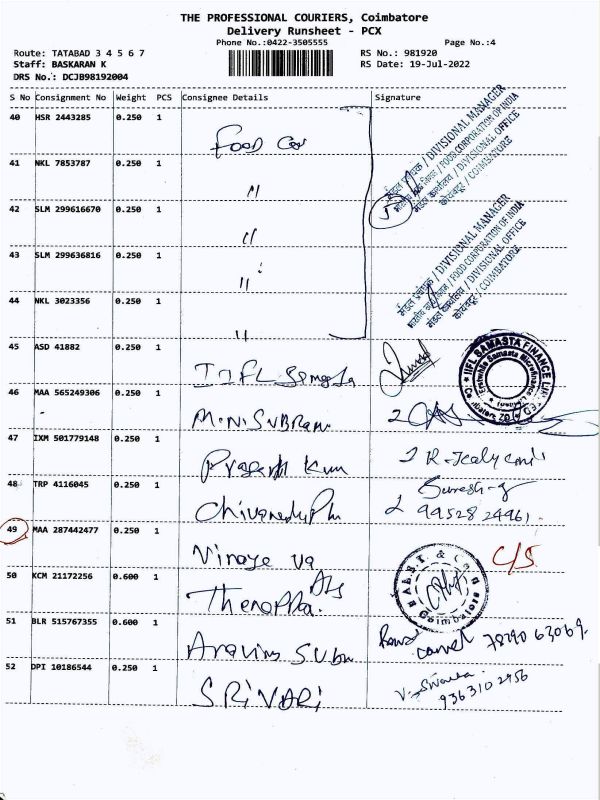 THE PROFESSIONAL COURIERS, Coimbatore
Delivery Runsheet - PCX
Phone No.:0422-3505555
Page No.:4
Route: TATABAD 3 4 5 6 7
RS No.: 981920
Staff: BASKARAN K
RS Date: 19-Jul-2022
DRS No.: DCJB98192004
S No Consignment No Weight PCS Consignee Details Signature
40 HSR 2443285 0.250 1
FOOD Cor
41 NKL 7853787 0.250 1
"
DIVISIONAL MANAGER
FOOD CORPORATION OF INDIA
DIVISIONAL OFFICE
COIMBATORE
5
42 SLM 299616670 0.250 1
"
43 SLM 299636816 0.250 1
"
DIVISIONAL MANAGER
FOOD CORPORATION OF INDIA
DIVISIONAL OFFICE
COIMBATORE
44 NKL 3023356 0.250 1
"
45 ASD 41882 0.250 1
IIFL Samasta
IIFL SAMASTA FINANCE
46 MAA 565249306 0.250 1
M.N.SUBRam
47 IXM 501779148 0.250 1
Prasanth Kum
48 TRP 4116045 0.250 1
Suresh-g
99528 24961.
49 MAA 287442477 0.250 1
Vinaye va
C/S
50 KCM 21172256 0.600 1
Coimbatore
51 BLR 515767355 0.600 1
Aravins Subm
78290 63069.
52 DPI 10186544 0.250 1
SRIVARI
9363102956